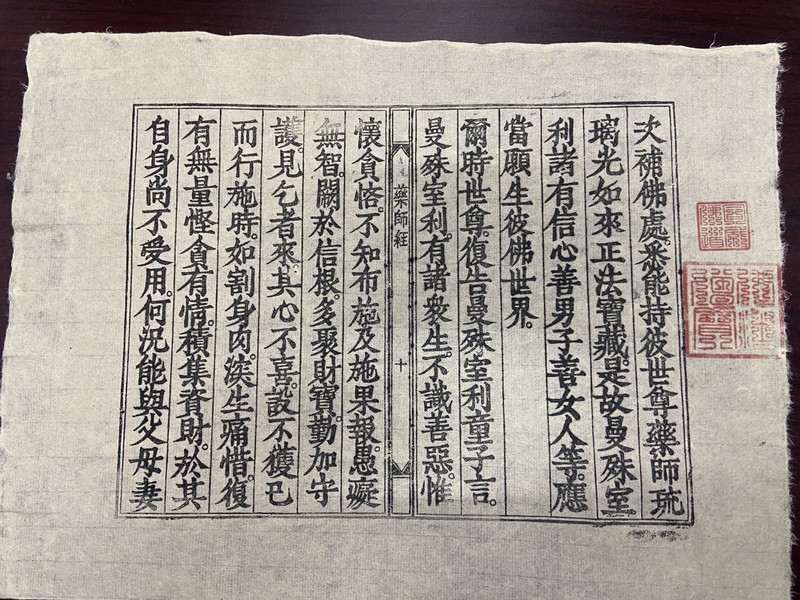 次補佛處。悉能持彼世尊藥師琉
璃光如來正法寶藏。是故曼殊室
利諸有信心善男子善女人等。應
當願生彼佛世界。
爾時世尊。復告曼殊室利童子言。
曼殊室利。有諸衆生。不識善惡。惟
藥師經 十
懷貪悋。不知布施及施果報。愚癡
無智。闕於信根。多聚財寶。勤加守
護。見乞者來。其心不喜。設不獲已
而行施時。如割身肉。深生痛惜。復
有無量慳貪有情。積集資財。於其
自身尚不受用。何況能與父母妻